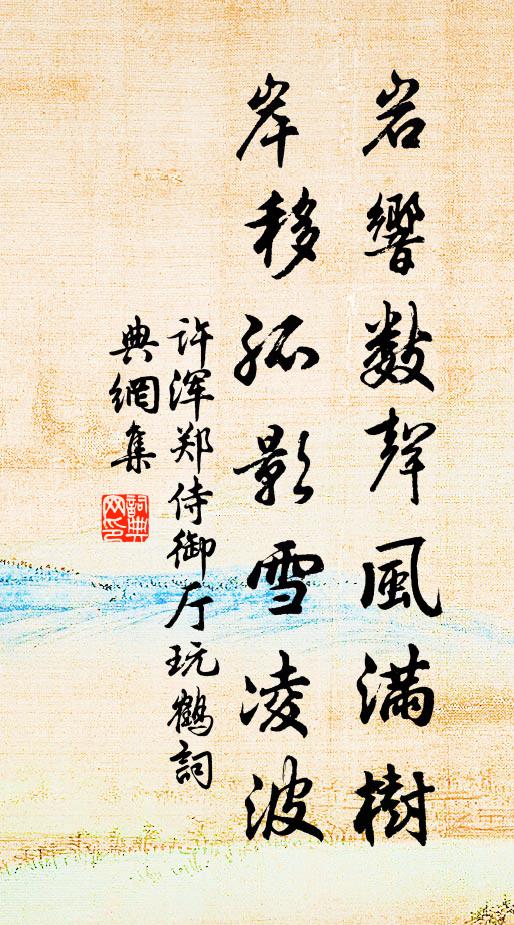 岩響数聲風滿樹
岸移孤影雪凌波
许浑郑侍御厅玩鶴詞
典網集
詞典
网印